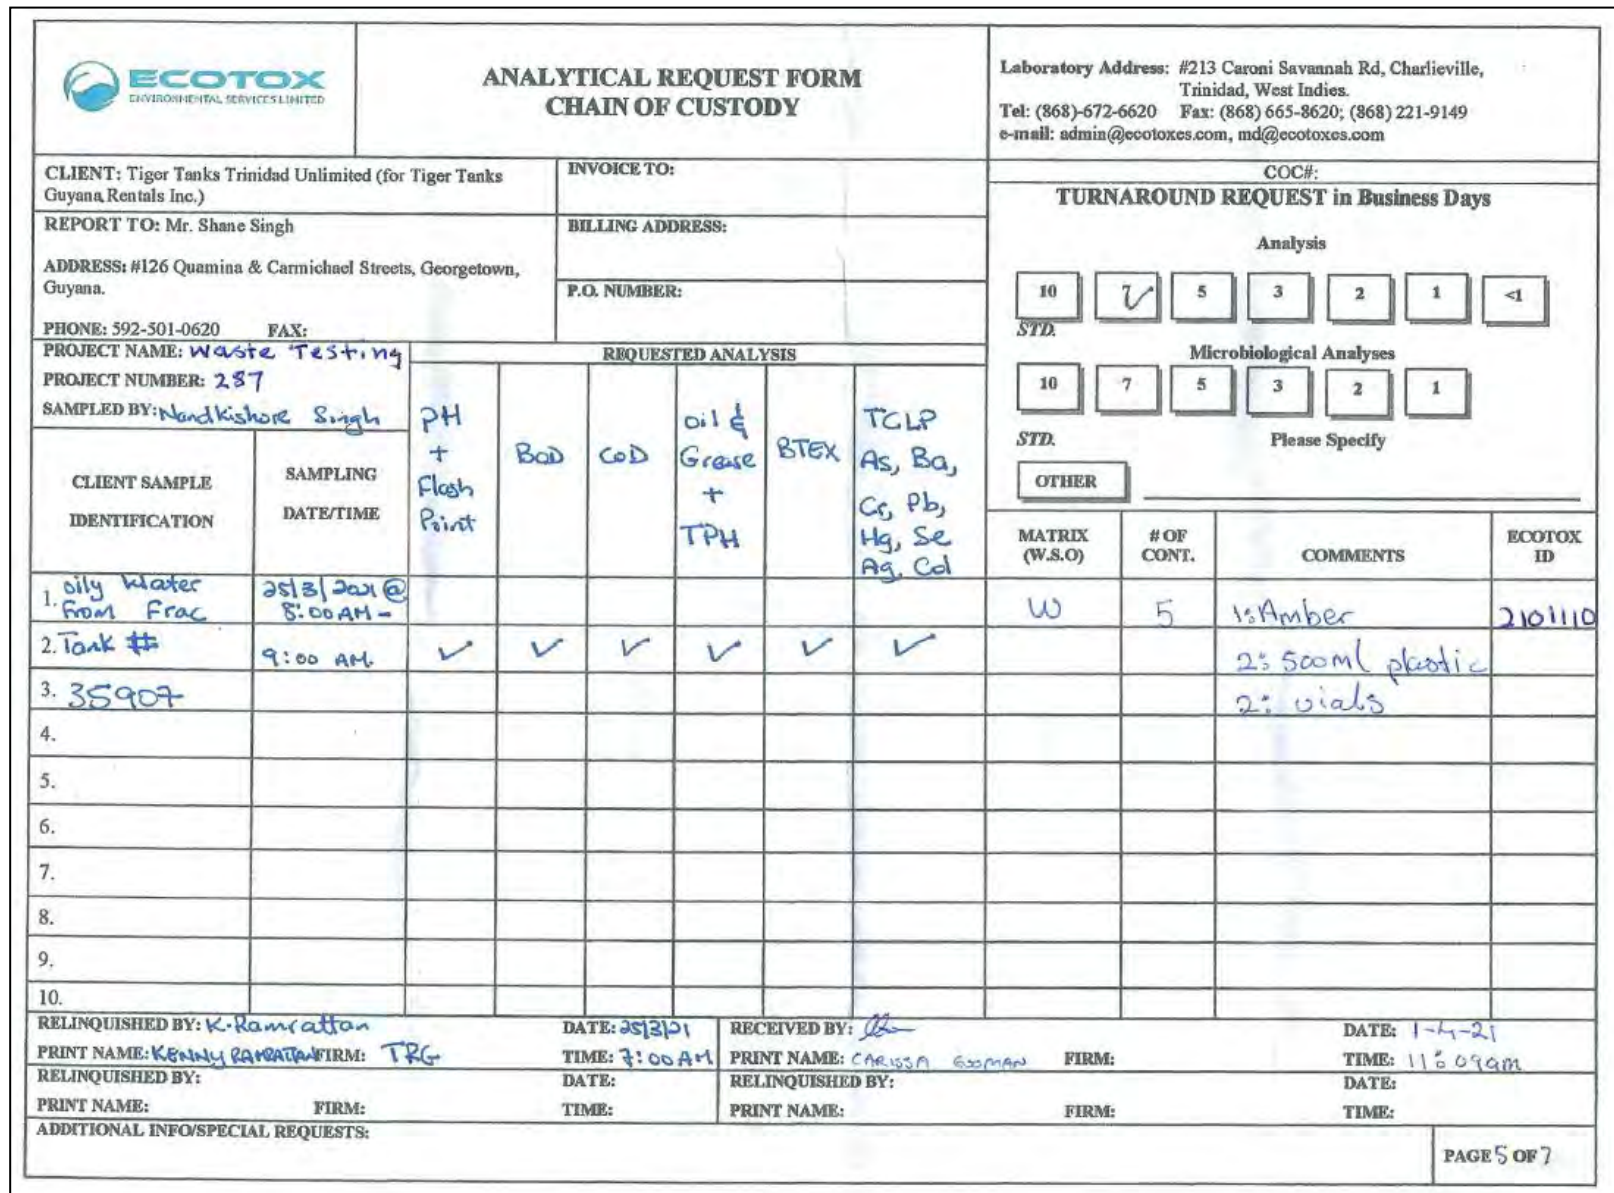 ECOTOX
ENVIRONMENTAL SERVICES LIMITED
ANALYTICAL REQUEST FORM
CHAIN OF CUSTODY
Laboratory Address: #213 Caroni Savannah Rd, Charlieville,
Trinidad, West Indies.
Tel: (868)-672-6620 Fax: (868) 665-8620; (868) 221-9149
e-mail: admin@ecotoxes.com, md@ecotoxes.com
CLIENT: Tiger Tanks Trinidad Unlimited (for Tiger Tanks
Guyana Rentals Inc.)
INVOICE TO:
COC#:
TURNAROUND REQUEST in Business Days
REPORT TO: Mr. Shane Singh
ADDRESS: #126 Quamina & Carmichael Streets, Georgetown,
Guyana.
PHONE: 592-501-0620 FAX:
BILLING ADDRESS:
P.O. NUMBER:
Analysis
10 7 5 3 2 1 <1
STD.
Microbiological Analyses
10 7 5 3 2 1
STD. Please Specify
OTHER
PROJECT NAME: Waste Testing
PROJECT NUMBER: 287
SAMPLED BY: Nandkishore Singh
REQUESTED ANALYSIS
CLIENT SAMPLE
IDENTIFICATION
SAMPLING
DATE/TIME
PH
+
Flash
Point
BOD
COD
Oil &
Grease
+
TPH
BTEX
TCLP
As, Ba,
Cr, Pb,
Hg, Se
Ag, Cd
MATRIX
(W.S.O)
# OF
CONT.
COMMENTS
ECOTOX
ID
1. Oily Water
From Frac
25/3/2021 @
8:00 AM -
W 5 1: Amber 2101110
2. Tank # 9:00 AM. ✓ ✓ ✓ ✓ ✓ ✓ 2: 500ml plastic
3. 35907 2: vials
4.
5.
6.
7.
8.
9.
10.
RELINQUISHED BY: K. Ramrattan DATE: 25/3/21 RECEIVED BY: DATE: 1-4-21
PRINT NAME: KENNY RAMRATTAN FIRM: TRG TIME: 7:00 AM PRINT NAME: CARISSA FIRM: TIME: 11:09am
RELINQUISHED BY: DATE: RELINQUISHED BY: DATE:
PRINT NAME: FIRM: TIME: PRINT NAME: FIRM: TIME:
ADDITIONAL INFO/SPECIAL REQUESTS:
PAGE 5 OF 7